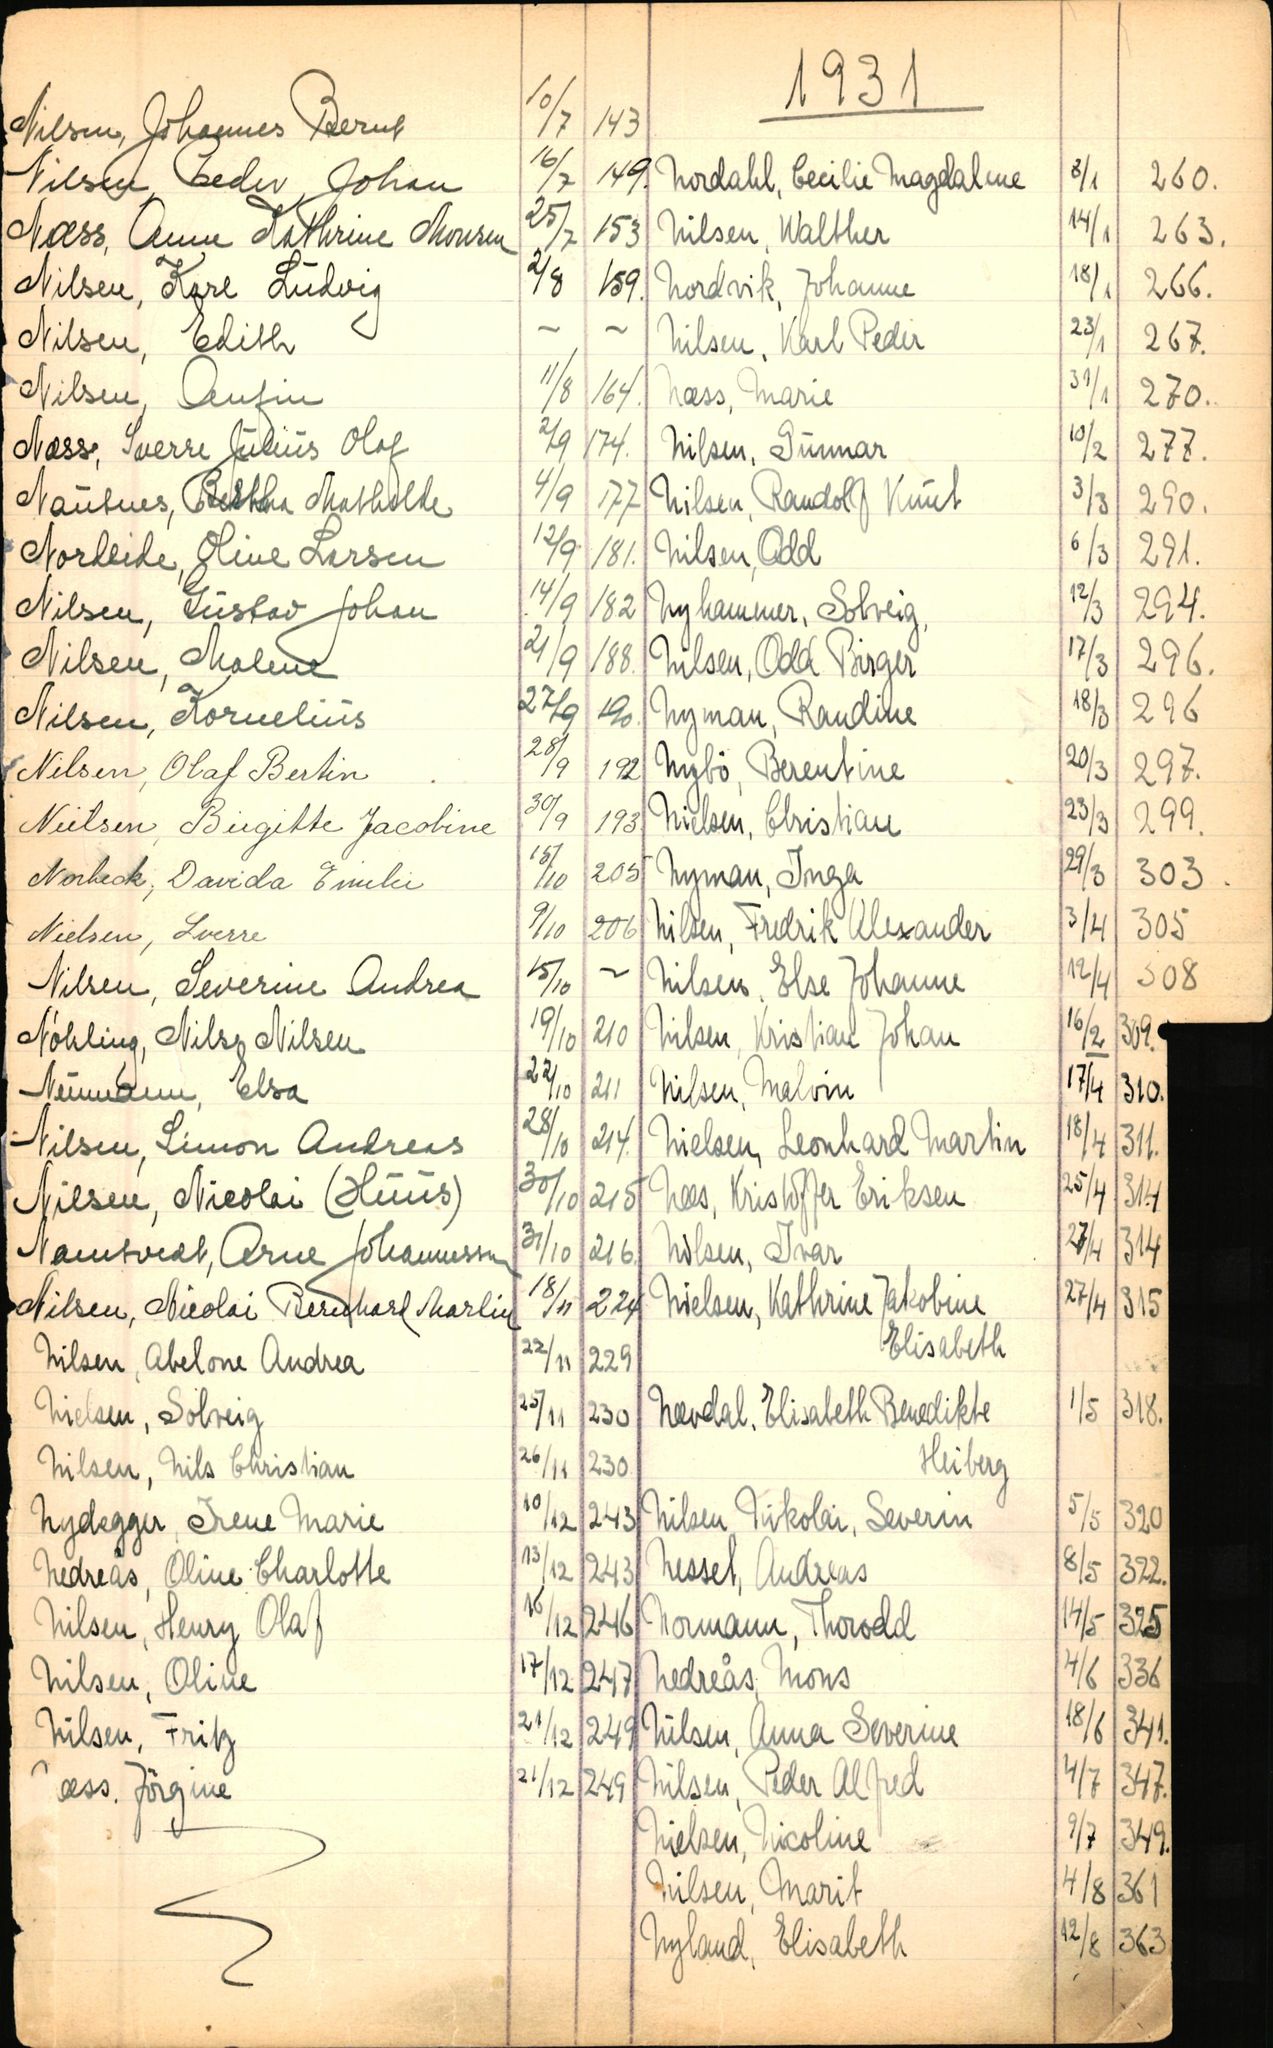 Nilsen, Johannes Bernt 10/7 143
Nilsen, Peder Johan 16/7 149.
Næss, Anne Kathrine Monsen 25/7 153
Nilsen, Karl Ludvig 2/8 159.
Nilsen, Edith ~ ~
Nilsen, Anfin 11/8 164.
Næss, Sverre Julius Olaf 2/9 174.
Nautnes, Bertha Mathilde 4/9 177
Nordeide, Oline Larsen 12/9 181.
Nilsen, Gustav Johan 14/9 182
Nilsen, Malene 21/9 188.
Nilsen, Kornelius 27/9 190.
Nilsen, Olaf Bertin 28/9 192
Nielsen, Birgitte Jacobine 30/9 193
Norbeck, Davida Emilie 15/10 205
Nielsen, Sverre 9/10 206
Nilsen, Severine Andrea 15/10 ~
Nøhling, Nils Nilsen 19/10 210
Neumann, Elsa 22/10 211
Nilsen, Simon Andreas 28/10 214.
Nilsen, Nicolai (Huus) 30/10 215
Namtvedt, Arne Johannessen 31/10 216.
Nilsen, Nicolai Bernhard Martin 18/11 224
Nilsen, Abelone Andrea 22/11 229
Nielsen, Solveig 25/11 230
Nilsen, Nils Christian 26/11 230
Nydegger, Irene Marie 10/12 243
Nedreås, Oline Charlotte 13/12 243
Nilsen, Henry Olaf 16/12 246
Nilsen, Oline 17/12 247
Nilsen, Fritz 21/12 249
æss. Jörgine 21/12 249
1931
Nordahl, Cecilie Magdalene 8/1 260.
Nilsen, Walther 14/1 263.
Nordvik, Johanne 18/1 266.
Nilsen, Karl Peder 23/1 267.
Næss, Marie 31/1 270.
Nilsen, Gunnar 10/2 277.
Nilsen, Randolf Knut 3/3 290.
Nilsen, Odd 6/3 291.
Nyhammer, Solveig, 12/3 294.
Nilsen, Odd Birger 17/3 296.
Nyman, Randine 18/3 296
Nybö, Berentine 20/3 297.
Nielsen, Christian 23/3 299.
Nyman, Inga 29/3 303.
Nilsen, Fredrik Alexander 3/4 305
Nilsen, Else Johanne 12/4 308
Nilsen, Kristian Johan 16/2 309.
Nilsen, Malvin 17/4 310.
Nielsen, Leonhard Martin 18/4 311.
Næs, Kristoffer Eriksen 25/4 314
Nilsen, Ivar 27/4 314
Nielsen, Kathrine Jakobine 27/4 315
Elisabeth
Nævdal, Elisabeth Benedikte 1/5 318.
Heiberg
Nilsen Nikolai, Severin 5/5 320
Nesset, Andreas 8/5 322.
Normann, Thorodd 14/5 325
Nedreås, Mons 4/6 336
Nilsen, Anna Severine 18/6 341.
Nilsen, Peder Alfred 4/7 347.
Nielsen, Nicoline 9/7 349.
Nilsen, Marit 4/8 361
Nyland, Elisabeth 12/8 363